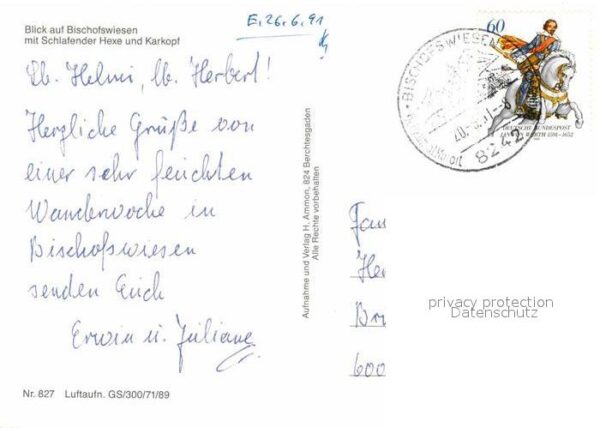 Blick auf Bischofswiesen
mit Schlafender Hexe und Karkopf
E. 26.6.91
Lb. Helmi, lb. Herbert!
Herzliche Grüße von
einer sehr feuchten
Wanderwoche in
Bischofswiesen
senden Euch
Erwin u. Juliane
Nr. 827 Luftaufn. GS/300/71/89
Aufnahme und Verlag H. Ammon, 824 Berchtesgaden
Alle Rechte vorbehalten
60
DEUTSCHE BUNDESPOST
JAN VON WERTH 1591-1652
BISCHOFSWIESEN
8242
Fam
He
Br
600
privacy protection
Datenschutz